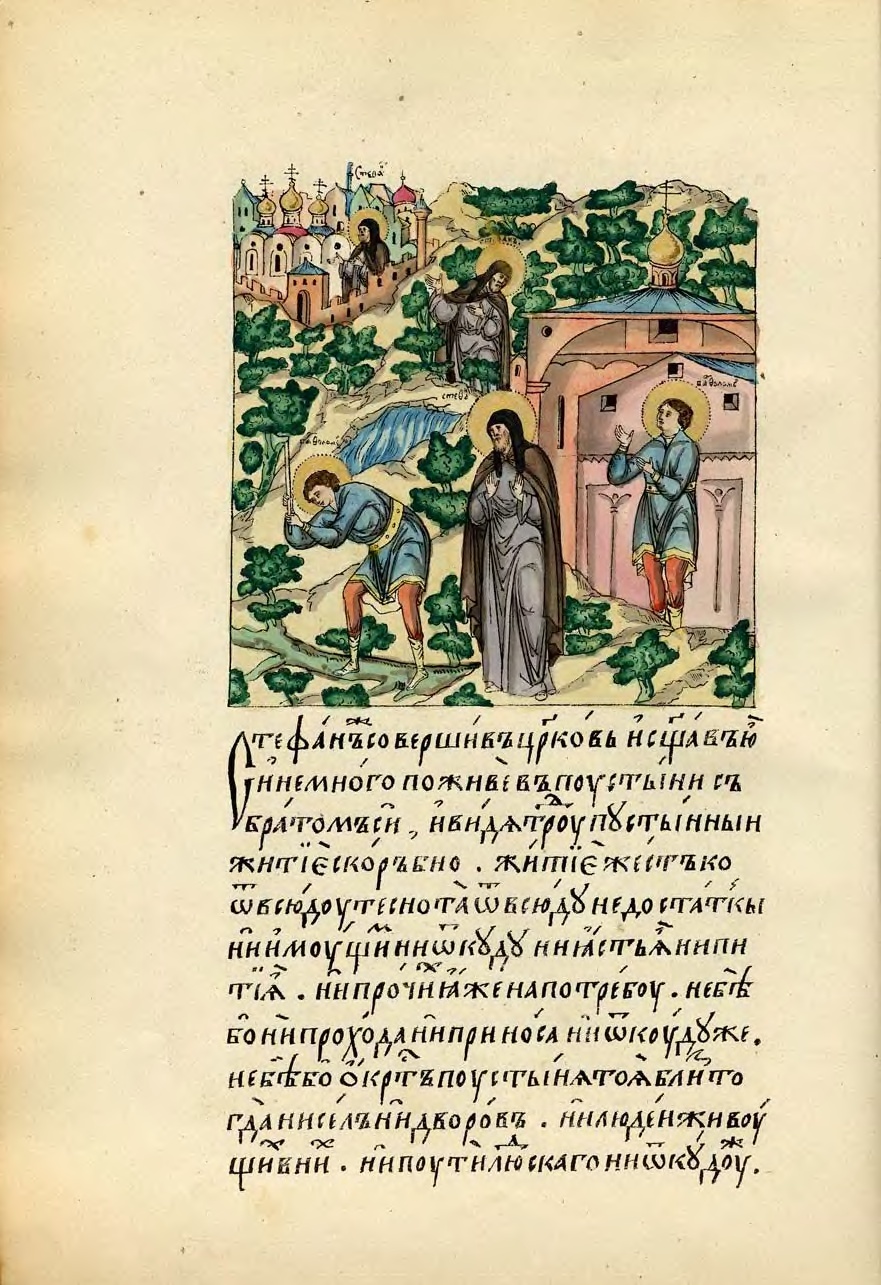 Стефа́
Стефа́
Стефа́
ва́ѳоломѣ
ва́ѳоломѣ
Стефа́нъ же соверши́въ цр҃ко́вь и҆ сщ҃а́въ ю҆̀
и҆ немно́го пожи́ве въ поусты́ни съ
бра́томъ си , и҆ ви́дѧ трꙋ́дъ пꙋсты́нныи
житїѐ ско́ръбно . жи́тїе же́стъко
ѿвсю́доу теснота̀ ѿвсю́дꙋ недоста́тки
ни и҆мꙋщимъ ни ѿкꙋдꙋ ни ꙗ҆стьѧ ни пи
тїѧ̀ . ни про́чихъ ꙗ҆же на потре́боу . не бѣ̀
бо ни прохо́да ни приноса ни ѿкоудꙋже .
не бѣ̀ бо ѻ҆́крⷭ҇тъ поусты́нѧ тоѧ̀ бли́з то
гда̀ ни се́лъ ни дворо́въ . ни люде́и живоу́
щихъ в ни́хъ . ни поути́ лю́дскаго ни ѿкꙋдоу .